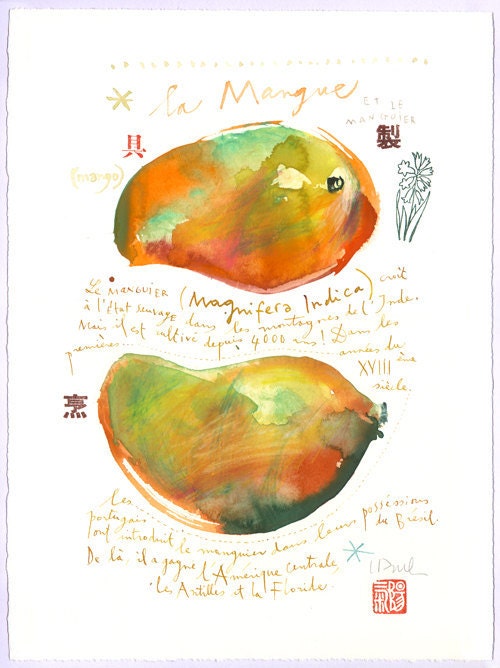 la Mangue
ET LE
MANGUIER
具
製
(mango)
Le MANGUIER (Magnifera Indica) croît
à l'État sauvage dans les montagnes de l'Inde.
Mais il est cultivé depuis 4000 ans! Dans les
premières... années du
XVIII ème
siècle.
烹
Les
portugais
ont introduit le manguier dans leurs posséssions
du Brésil.
De là, il a gagné l'Amérique centrale,
les Antilles et la Floride.